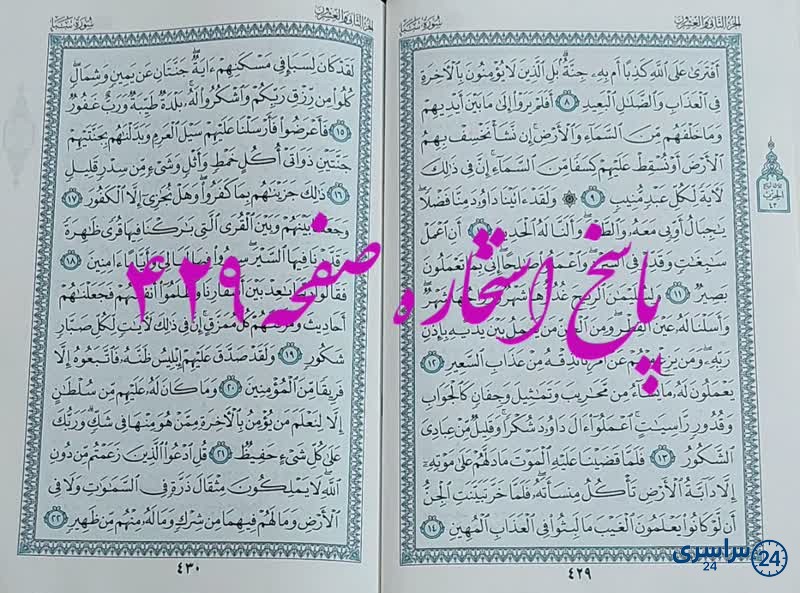 الجزء الثاني والعشرون
سورة سبإ
أَفْتَرَىٰ عَلَى ٱللَّهِ كَذِبًا أَم بِهِۦ جِنَّةٌۢ بَلِ ٱلَّذِينَ لَا يُؤْمِنُونَ بِٱلْأَخِرَةِ
فِى ٱلْعَذَابِ وَٱلضَّلَٰلِ ٱلْبَعِيدِ ٨ أَفَلَمْ يَرَوْا۟ إِلَىٰ مَا بَيْنَ أَيْدِيهِمْ
وَمَا خَلْفَهُم مِّنَ ٱلسَّمَآءِ وَٱلْأَرْضِ إِن نَّشَأْ نَخْسِفْ بِهِمُ
ٱلْأَرْضَ أَوْ نُسْقِطْ عَلَيْهِمْ كِسَفًا مِّنَ ٱلسَّمَآءِ إِنَّ فِى ذَٰلِكَ
لَأَيَةً لِّكُلِّ عَبْدٍ مُّنِيبٍ ٩ ۞ وَلَقَدْ ءَاتَيْنَا دَاوُۥدَ مِنَّا فَضْلًا
يَٰجِبَالُ أَوِّبِى مَعَهُۥ وَٱلطَّيْرَ وَأَلَنَّا لَهُ ٱلْحَدِيدَ أَنِ ٱعْمَلْ
سَٰبِغَٰتٍ وَقَدِّرْ فِى ٱلسَّرْدِ وَٱعْمَلُوا۟ صَٰلِحًا إِنِّى بِمَا تَعْمَلُونَ
بَصِيرٌ ١١ وَلِسُلَيْمَٰنَ ٱلرِّيحَ غُدُوُّهَا شَهْرٌ وَرَوَاحُهَا شَهْرٌ
وَأَسَلْنَا لَهُۥ عَيْنَ ٱلْقِطْرِ وَمِنَ ٱلْجِنِّ مَن يَعْمَلُ بَيْنَ يَدَيْهِ بِإِذْنِ
رَبِّهِۦ وَمَن يَزِغْ مِنْهُمْ عَنْ أَمْرِنَا نُذِقْهُ مِنْ عَذَابِ ٱلسَّعِيرِ ١٢
يَعْمَلُونَ لَهُۥ مَا يَشَآءُ مِن مَّحَٰرِيبَ وَتَمَٰثِيلَ وَجِفَانٍ كَٱلْجَوَابِ
وَقُدُورٍ رَّاسِيَٰتٍ ٱعْمَلُوٓا۟ ءَالَ دَاوُۥدَ شُكْرًا وَقَلِيلٌ مِّنْ عِبَادِىَ
ٱلشَّكُورُ ١٣ فَلَمَّا قَضَيْنَا عَلَيْهِ ٱلْمَوْتَ مَا دَلَّهُمْ عَلَىٰ مَوْتِهِۦٓ
إِلَّا دَآبَّةُ ٱلْأَرْضِ تَأْكُلُ مِنسَأَتَهُۥ فَلَمَّا خَرَّ تَبَيَّنَتِ ٱلْجِنُّ
أَن لَّوْ كَانُوا۟ يَعْلَمُونَ ٱلْغَيْبَ مَا لَبِثُوا۟ فِى ٱلْعَذَابِ ٱلْمُهِينِ ١٤
٤٢٩
الجزء الثاني والعشرون
سورة سبإ
لَقَدْ كَانَ لِسَبَإٍ فِى مَسْكَنِهِمْ ءَايَةٌ جَنَّتَانِ عَن يَمِينٍ وَشِمَالٍ
كُلُوا۟ مِن رِّزْقِ رَبِّكُمْ وَٱشْكُرُوا۟ لَهُۥ بَلْدَةٌ طَيِّبَةٌ وَرَبٌّ غَفُورٌ
١٥ فَأَعْرَضُوا۟ فَأَرْسَلْنَا عَلَيْهِمْ سَيْلَ ٱلْعَرِمِ وَبَدَّلْنَٰهُم بِجَنَّتَيْهِمْ
جَنَّتَيْنِ ذَوَاتَىْ أُكُلٍ خَمْطٍ وَأَثْلٍ وَشَىْءٍ مِّن سِدْرٍ قَلِيلٍ
١٦ ذَٰلِكَ جَزَيْنَٰهُم بِمَا كَفَرُوا۟ وَهَلْ نُجَٰزِىٓ إِلَّا ٱلْكَفُورَ ١٧
وَجَعَلْنَا بَيْنَهُمْ وَبَيْنَ ٱلْقُرَى ٱلَّتِى بَٰرَكْنَا فِيهَا قُرًى ظَٰهِرَةً
وَقَدَّرْنَا فِيهَا ٱلسَّيْرَ سِيرُوا۟ فِيهَا لَيَالِىَ وَأَيَّامًا ءَامِنِينَ ١٨
فَقَالُوا۟ رَبَّنَا بَٰعِدْ بَيْنَ أَسْفَارِنَا وَظَلَمُوٓا۟ أَنفُسَهُمْ فَجَعَلْنَٰهُمْ
أَحَادِيثَ وَمَزَّقْنَٰهُمْ كُلَّ مُمَزَّقٍ إِنَّ فِى ذَٰلِكَ لَأَيَٰتٍ لِّكُلِّ صَبَّارٍ
شَكُورٍ ١٩ وَلَقَدْ صَدَّقَ عَلَيْهِمْ إِبْلِيسُ ظَنَّهُۥ فَٱتَّبَعُوهُ إِلَّا
فَرِيقًا مِّنَ ٱلْمُؤْمِنِينَ ٢٠ وَمَا كَانَ لَهُۥ عَلَيْهِم مِّن سُلْطَٰنٍ
إِلَّا لِنَعْلَمَ مَن يُؤْمِنُ بِٱلْأَخِرَةِ مِمَّنْ هُوَ مِنْهَا فِى شَكٍّ وَرَبُّكَ
عَلَىٰ كُلِّ شَىْءٍ حَفِيظٌ ٢١ قُلِ ٱدْعُوا۟ ٱلَّذِينَ زَعَمْتُم مِّن دُونِ
ٱللَّهِ لَا يَمْلِكُونَ مِثْقَالَ ذَرَّةٍ فِى ٱلسَّمَٰوَٰتِ وَلَا فِى
ٱلْأَرْضِ وَمَا لَهُمْ فِيهِمَا مِن شِرْكٍ وَمَا لَهُۥ مِنْهُم مِّن ظَهِيرٍ ٢٢
٤٣٠
پاسخ استخاره صفحه ۴۲۹
سراسری 24
24